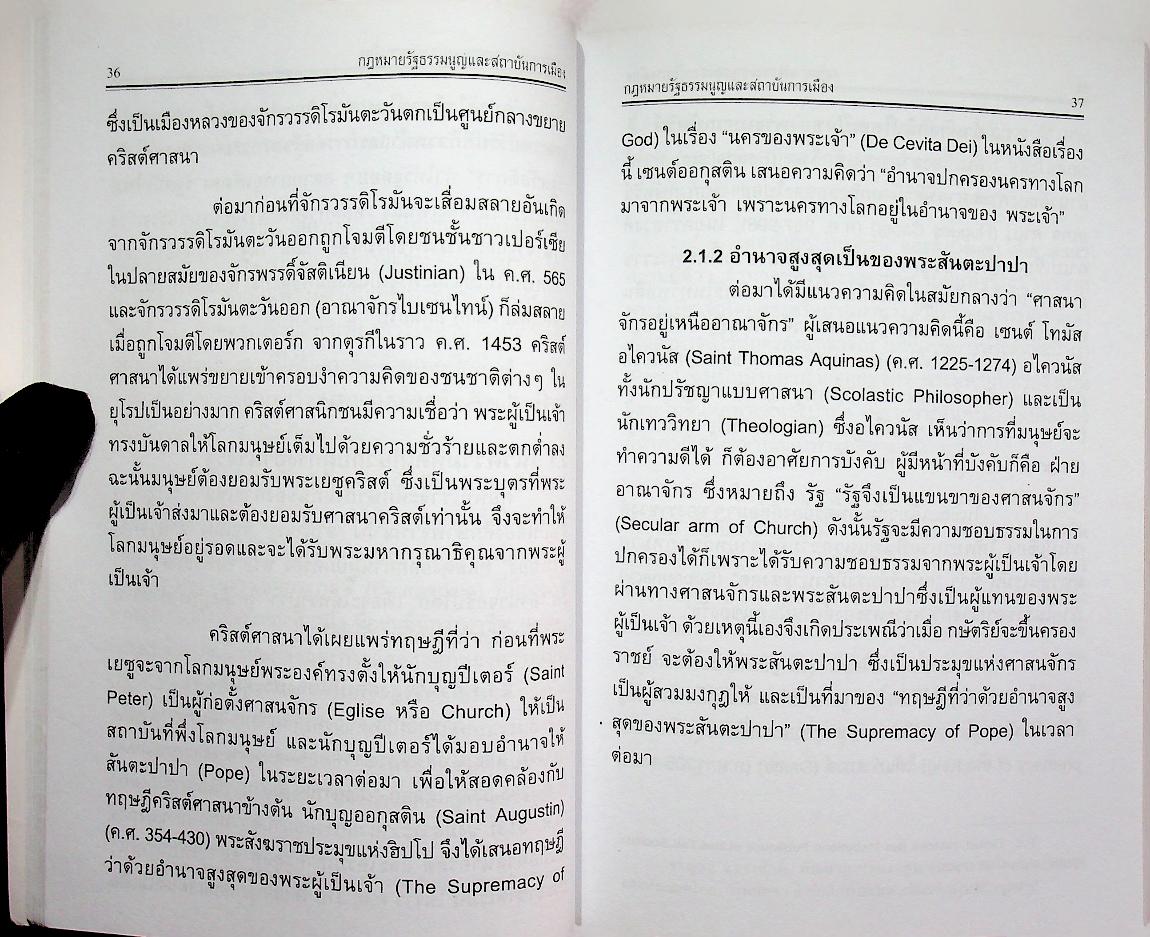 36
กฎหมายรัฐธรรมนูญและสถาบันการเมือง
ซึ่งเป็นเมืองหลวงของจักรวรรดิโรมันตะวันตกเป็นศูนย์กลางขยาย
คริสต์ศาสนา
ต่อมาก่อนที่จักรวรรดิโรมันจะเสื่อมสลายอันเกิด
จากจักรวรรดิโรมันตะวันออกถูกโจมตีโดยชนชั้นชาวเปอร์เซีย
ในปลายสมัยของจักรพรรดิ์จัสติเนียน (Justinian) ใน ค.ศ. 565
และจักรวรรดิโรมันตะวันออก (อาณาจักรไบเซนไทน์) ก็ล่มสลาย
เมื่อถูกโจมตีโดยพวกเตอร์ก จากตุรกีในราว ค.ศ. 1453 คริสต์
ศาสนาได้แพร่ขยายเข้าครอบงำความคิดของชนชาติต่างๆ ใน
ยุโรปเป็นอย่างมาก คริสต์ศาสนิกชนมีความเชื่อว่า พระผู้เป็นเจ้า
ทรงบันดาลให้โลกมนุษย์เต็มไปด้วยความชั่วร้ายและตกต่ำลง
ฉะนั้นมนุษย์ต้องยอมรับพระเยซูคริสต์ ซึ่งเป็นพระบุตรที่พระ
ผู้เป็นเจ้าส่งมาและต้องยอมรับศาสนาคริสต์เท่านั้น จึงจะทำให้
โลกมนุษย์อยู่รอดและจะได้รับพระมหากรุณาธิคุณจากพระผู้
เป็นเจ้า
คริสต์ศาสนาได้เผยแพร่ทฤษฎีที่ว่า ก่อนที่พระ
เยซูจะจากโลกมนุษย์พระองค์ทรงตั้งให้นักบุญปีเตอร์ (Saint
Peter) เป็นผู้ก่อตั้งศาสนจักร (Eglise หรือ Church) ให้เป็น
สถาบันที่พึ่งโลกมนุษย์ และนักบุญปีเตอร์ได้มอบอำนาจให้
สันตะปาปา (Pope) ในระยะเวลาต่อมา เพื่อให้สอดคล้องกับ
ทฤษฎีคริสต์ศาสนาข้างต้น นักบุญออกุสติน (Saint Augustin)
(ค.ศ. 354-430) พระสังฆราชประมุขแห่งฮิปโป จึงได้เสนอทฤษฎี
ว่าด้วยอำนาจสูงสุดของพระผู้เป็นเจ้า (The Supremacy of
กฎหมายรัฐธรรมนูญและสถาบันการเมือง
37
God) ในเรื่อง “นครของพระเจ้า” (De Cevita Dei) ในหนังสือเรื่อง
นี้ เซนต์ออกุสติน เสนอความคิดว่า “อำนาจปกครองนครทางโลก
มาจากพระเจ้า เพราะนครทางโลกอยู่ในอำนาจของ พระเจ้า”
2.1.2 อำนาจสูงสุดเป็นของพระสันตะปาปา
ต่อมาได้มีแนวความคิดในสมัยกลางว่า “ศาสนา
จักรอยู่เหนืออาณาจักร” ผู้เสนอแนวความคิดนี้คือ เซนต์ โทมัส
อไควนัส (Saint Thomas Aquinas) (ค.ศ. 1225-1274) อไควนัส
ทั้งนักปรัชญาแบบศาสนา (Scolastic Philosopher) และเป็น
นักเทววิทยา (Theologian) ซึ่งอไควนัส เห็นว่าการที่มนุษย์จะ
ทำความดีได้ ก็ต้องอาศัยการบังคับ ผู้มีหน้าที่บังคับก็คือ ฝ่าย
อาณาจักร ซึ่งหมายถึง รัฐ “รัฐจึงเป็นแขนขาของศาสนจักร”
(Secular arm of Church) ดังนั้นรัฐจะมีความชอบธรรมในการ
ปกครองได้ก็เพราะได้รับความชอบธรรมจากพระผู้เป็นเจ้าโดย
ผ่านทางศาสนจักรและพระสันตะปาปาซึ่งเป็นผู้แทนของพระ
ผู้เป็นเจ้า ด้วยเหตุนี้เองจึงเกิดประเพณีว่าเมื่อ กษัตริย์จะขึ้นครอง
ราชย์ จะต้องให้พระสันตะปาปา ซึ่งเป็นประมุขแห่งศาสนจักร
เป็นผู้สวมมงกุฎให้ และเป็นที่มาของ “ทฤษฎีที่ว่าด้วยอำนาจสูง
สุดของพระสันตะปาปา” (The Supremacy of Pope) ในเวลา
ต่อมา